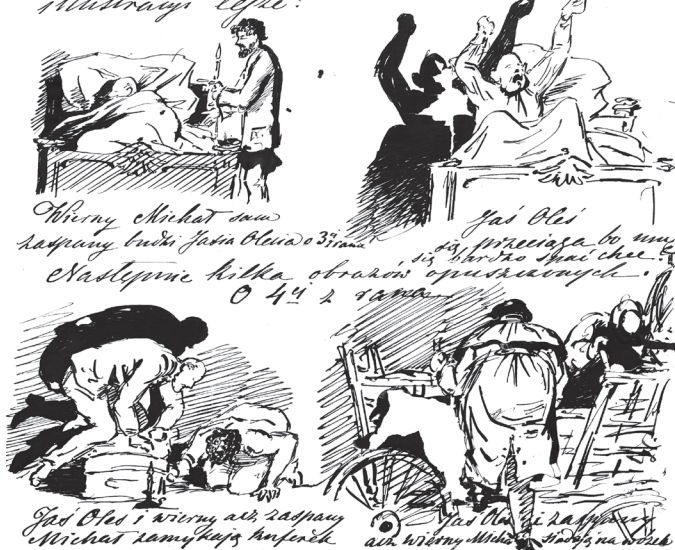 illustracyi lejże:
Wierny Michał sam
zaspany budzi Jasia Olesia o 3ej zrana
Jaś Oleś
się przeciąga bo mu
się bardzo spać chce.
Następnie kilka obrazów opuszczonych.
O 4ej z rana
Jaś Oles i wierny acz zaspany
Michał zamykają kuferek
Jaś Oleś i zaspany
acz wierny Michał siadają na wózek